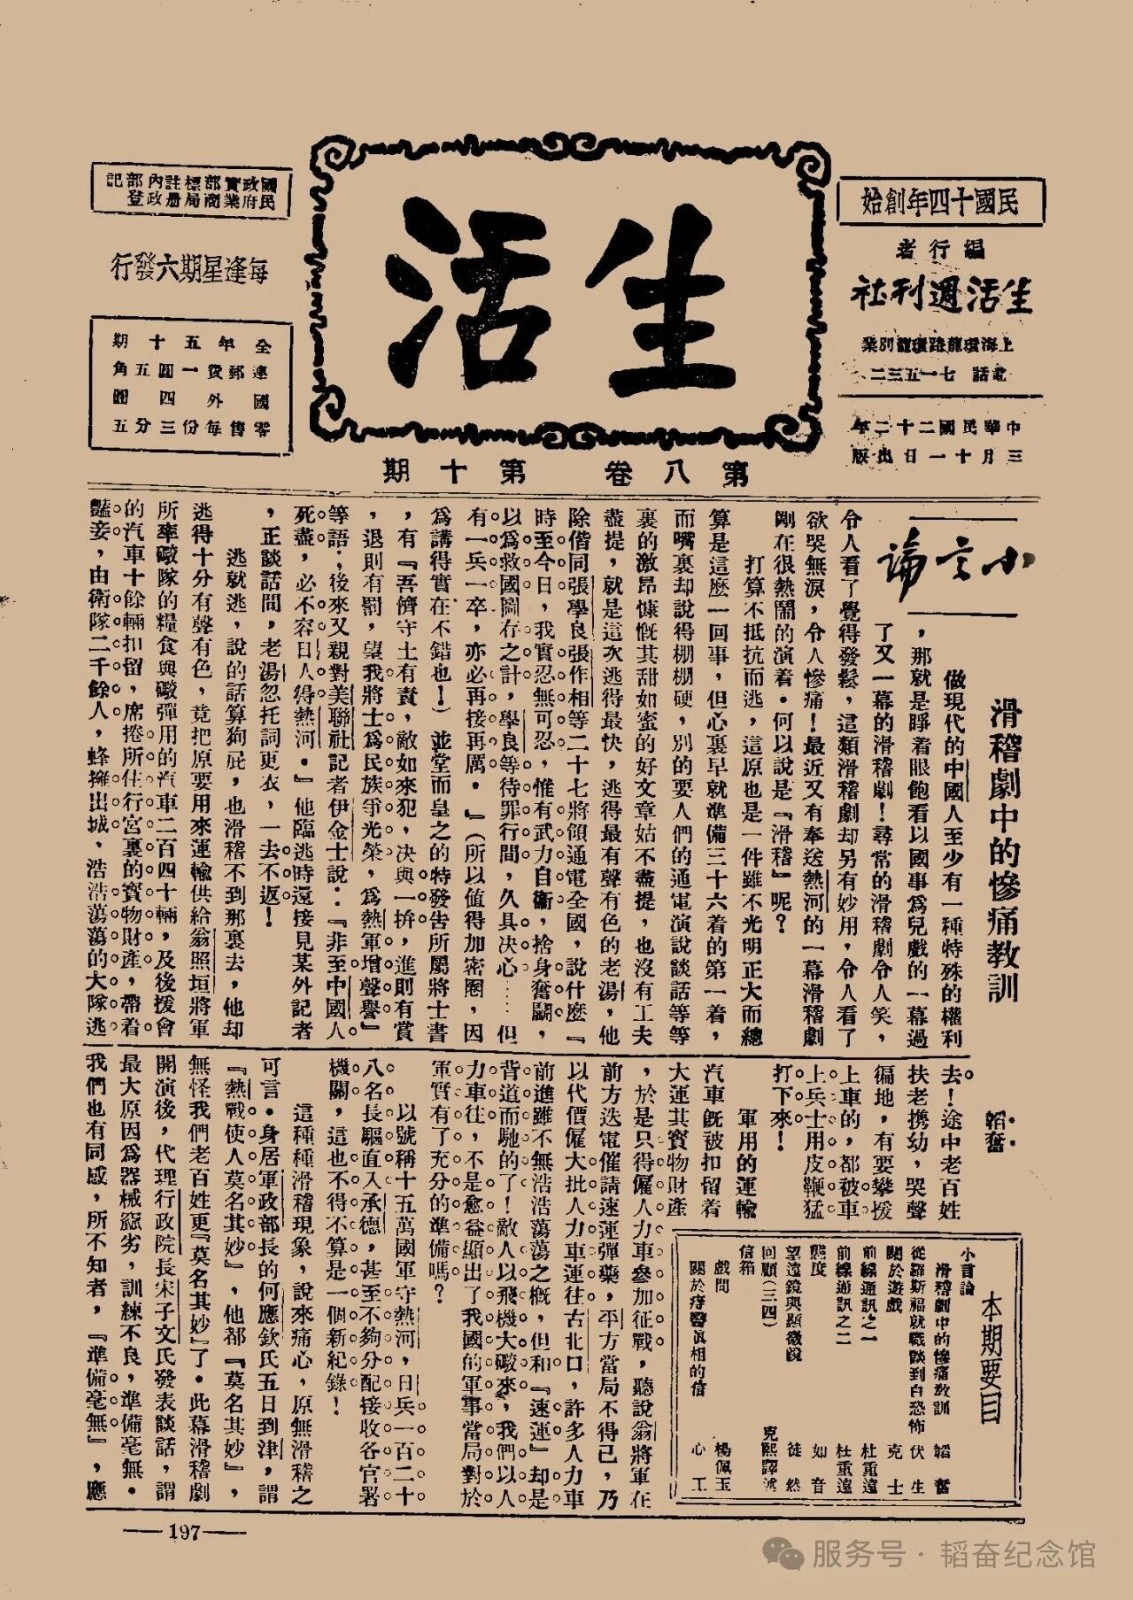 民國十四年創始
編行者
生活週刊社
上海環龍路環龍別業
電話 七一五三二
中華民國二十二年
三月十一日出版
生活
第八卷 第十期
國民政府實業部商標局註册內政部登記
每逢星期六發行
全年五十期
連郵費一圓五角
國外四圓
零售每份三分五
小言論
滑稽劇中的慘痛教訓
韜奮
做現代的中國人至少有一種特殊的權利
，那就是睜着眼飽看以國事爲兒戲的一幕過
了又一幕的滑稽劇！尋常的滑稽劇令人笑，
令人看了覺得發鬆，這類滑稽劇却另有妙用，令人看了
欲哭無淚，令人慘痛！最近又有奉送熱河的一幕滑稽劇
剛在很熱鬧的演着。何以說是『滑稽』呢？
打算不抵抗而逃，這原也是一件雖不光明正大而總
算是這麽一回事，但心裏早就準備三十六着的第一着，
而嘴裏却說得棚棚硬，別的要人們的通電演說談話等等
裏的激昂慷慨其甜如蜜的好文章姑不盡提，也沒有工夫
盡提，就是這次逃得最快，逃得最有聲有色的老湯，他
除偕同張學良張作相等二十七將領通電全國，說什麽『
時至今日，我實忍無可忍，惟有武力自衞，捨身奮鬭，
以爲救國圖存之計，學良等待罪行間，久具決心……但
有一兵一卒，亦必再接再厲。』（所以值得加密圈，因
爲講得實在不錯也！）並堂而皇之的特發告所屬將士書
，有『吾儕守土有責，敵如來犯，決與一拚，進則有賞
，退則有罰，望我將士爲民族爭光榮，爲熱軍增聲譽』
等語；後來又親對美聯社記者伊金士說：『非至中國人
死盡，必不容日人得熱河。』他臨逃時還接見某外記者
，正談話間，老湯忽托詞更衣，一去不返！
逃就逃，說的話算狗屁，也滑稽不到那裏去，他却
逃得十分有聲有色，竟把原要用來運輸供給翁照垣將軍
所率礮隊的糧食與礮彈用的汽車二百四十輛，及後援會
的汽車十餘輛扣留，席捲所住行宮裏的寳物財產，帶着
豔妾，由衛隊二千餘人，蜂擁出城，浩浩蕩蕩的大隊逃
去！途中老百姓
扶老携幼，哭聲
徧地，有要攀援
上車的，都被車
上兵士用皮鞭猛
打下來！
軍用的運輸
汽車旣被扣留着
大運其寳物財產
，於是只得僱人力車參加征戰，聽說翁將軍在
前方迭電催請速運彈藥，平方當局不得已，乃
以代價僱大批人力車運往古北口，許多人力車
前進雖不無浩浩蕩蕩之概，但和『速運』却是
背道而馳的了！敵人以飛機大礮來，我們以人
力車往，不是愈益顯出了我國的軍事當局對於
軍實有了充分的準備嗎？
以號稱十五萬國軍守熱河，日兵一百二十
八名長驅直入承德，甚至不夠分配接收各官署
機關，這也不得不算是一個新紀錄！
這種種滑稽現象，說來痛心，原無滑稽之
可言。身居軍政部長的何應欽氏五日到津，謂
『熱戰使人莫名其妙』，他都『莫名其妙』，
無怪我們老百姓更『莫名其妙』了。此幕滑稽劇
開演後，代理行政院長宋子文氏發表談話，謂
最大原因爲器械窳劣，訓練不良，準備毫無。
我們也有同感，所不知者，『準備毫無』，應
本期要目
小言論
滑稽劇中的慘痛教訓 韜奮
從羅斯福就職談到白恐怖 伏生
關於遊戲 克士
前線通訊之一 杜重遠
前線通訊之二 杜重遠
態度 如音
望遠鏡與顯微鏡 徒然
回顧（三四） 克熙譯述
信箱
戲問 楊佩玉
關於痔醫眞相的信 心工
197
服务号 · 韬奋纪念馆